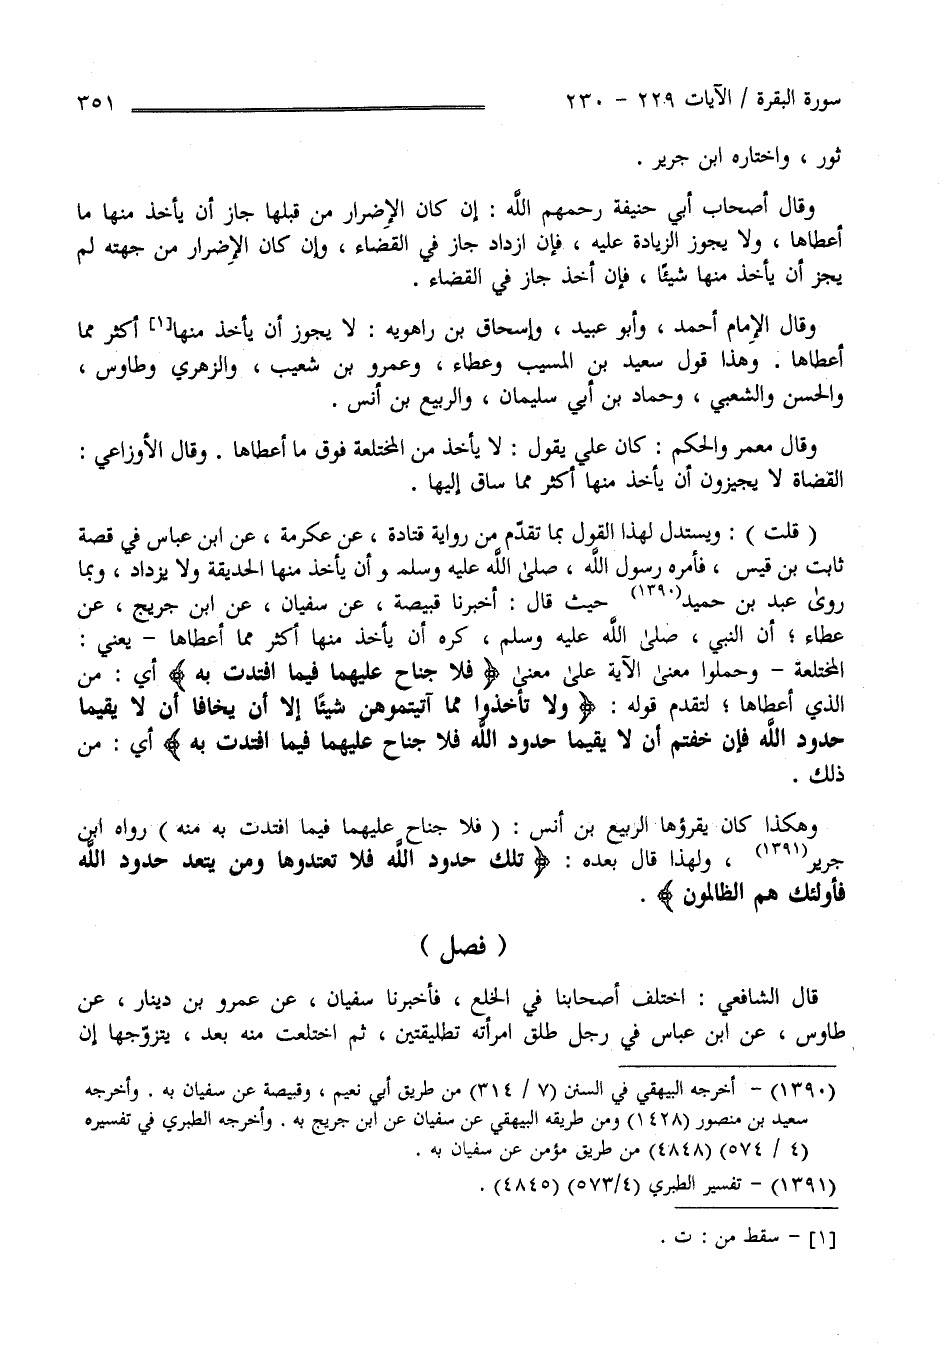 سورة البقرة / الآيات ٢٢٩ - ٢٣٠ ٣٥١
ثور ، واختاره ابن جرير .
وقال أصحاب أبي حنيفة رحمهم اللَّه : إن كان الإضرار من قبلها جاز أن يأخذ منها ما
أعطاها ، ولا يجوز الزيادة عليه ، فإن ازداد جاز في القضاء ، وإن كان الإضرار من جهته لم
يجز أن يأخذ منها شيئًا ، فإن أخذ جاز في القضاء .
وقال الإمام أحمد ، وأبو عبيد ، وإسحاق بن راهويه : لا يجوز أن يأخذ منها[١] أكثر مما
أعطاها . وهذا قول سعيد بن المسيب وعطاء ، وعمرو بن شعيب ، والزهري وطاوس ،
والحسن والشعبي ، وحماد بن أبي سليمان ، والربيع بن أنس .
وقال معمر والحكم : كان علي يقول : لا يأخذ من المختلعة فوق ما أعطاها . وقال الأوزاعي :
القضاة لا يجيزون أن يأخذ منها أكثر مما ساق إليها .
( قلت ) : ويستدل لهذا القول بما تقدّم من رواية قتادة ، عن عكرمة ، عن ابن عباس في قصة
ثابت بن قيس ، فأمره رسول اللَّه ، صلىٰ اللَّه عليه وسلم و أن يأخذ منها الحديقة ولا يزداد ، وبما
روىٰ عبد بن حميد(١٣٩٠) حيث قال : أخبرنا قبيصة ، عن سفيان ، عن ابن جريج ، عن
عطاء ؛ أن النبي ، صلىٰ اللَّه عليه وسلم ، كره أن يأخذ منها أكثر مما أعطاها - يعني :
المختلعة - وحملوا معنىٰ الآية علىٰ معنىٰ ﴿ فلا جناح عليهما فيما افتدت به ﴾ أي : من
الذي أعطاها ؛ لتقدم قوله : ﴿ ولا تأخذوا مما آتيتموهن شيئًا إلا أن يخافا أن لا يقيما
حدود اللَّه فإن خفتم أن لا يقيما حدود اللَّه فلا جناح عليهما فيما افتدت به ﴾ أي : من
ذلك .
وهكذا كان يقرؤها الربيع بن أنس : ( فلا جناح عليهما فيما افتدت به منه ) رواه ابن
جرير(١٣٩١) ، ولهذا قال بعده : ﴿ تلك حدود اللَّه فلا تعتدوها ومن يتعد حدود اللَّه
فأولئك هم الظالمون ﴾ .
( فصل )
قال الشافعي : اختلف أصحابنا في الخلع ، فأخبرنا سفيان ، عن عمرو بن دينار ، عن
طاوس ، عن ابن عباس في رجل طلق امرأته تطليقتين ، ثم اختلعت منه بعد ، يتزوّجها إن
(١٣٩٠) - أخرجه البيهقي في السنن (٧ / ٣١٤) من طريق أبي نعيم ، وقبيصة عن سفيان به . وأخرجه
سعيد بن منصور (١٤٢٨) ومن طريقه البيهقي عن سفيان عن ابن جريج به . وأخرجه الطبري في تفسيره
(٤ / ٥٧٤) (٤٨٤٨) من طريق مؤمن عن سفيان به .
(١٣٩١) - تفسير الطبري (٥٧٣/٤) (٤٨٤٥) .
[١] - سقط من : ت .